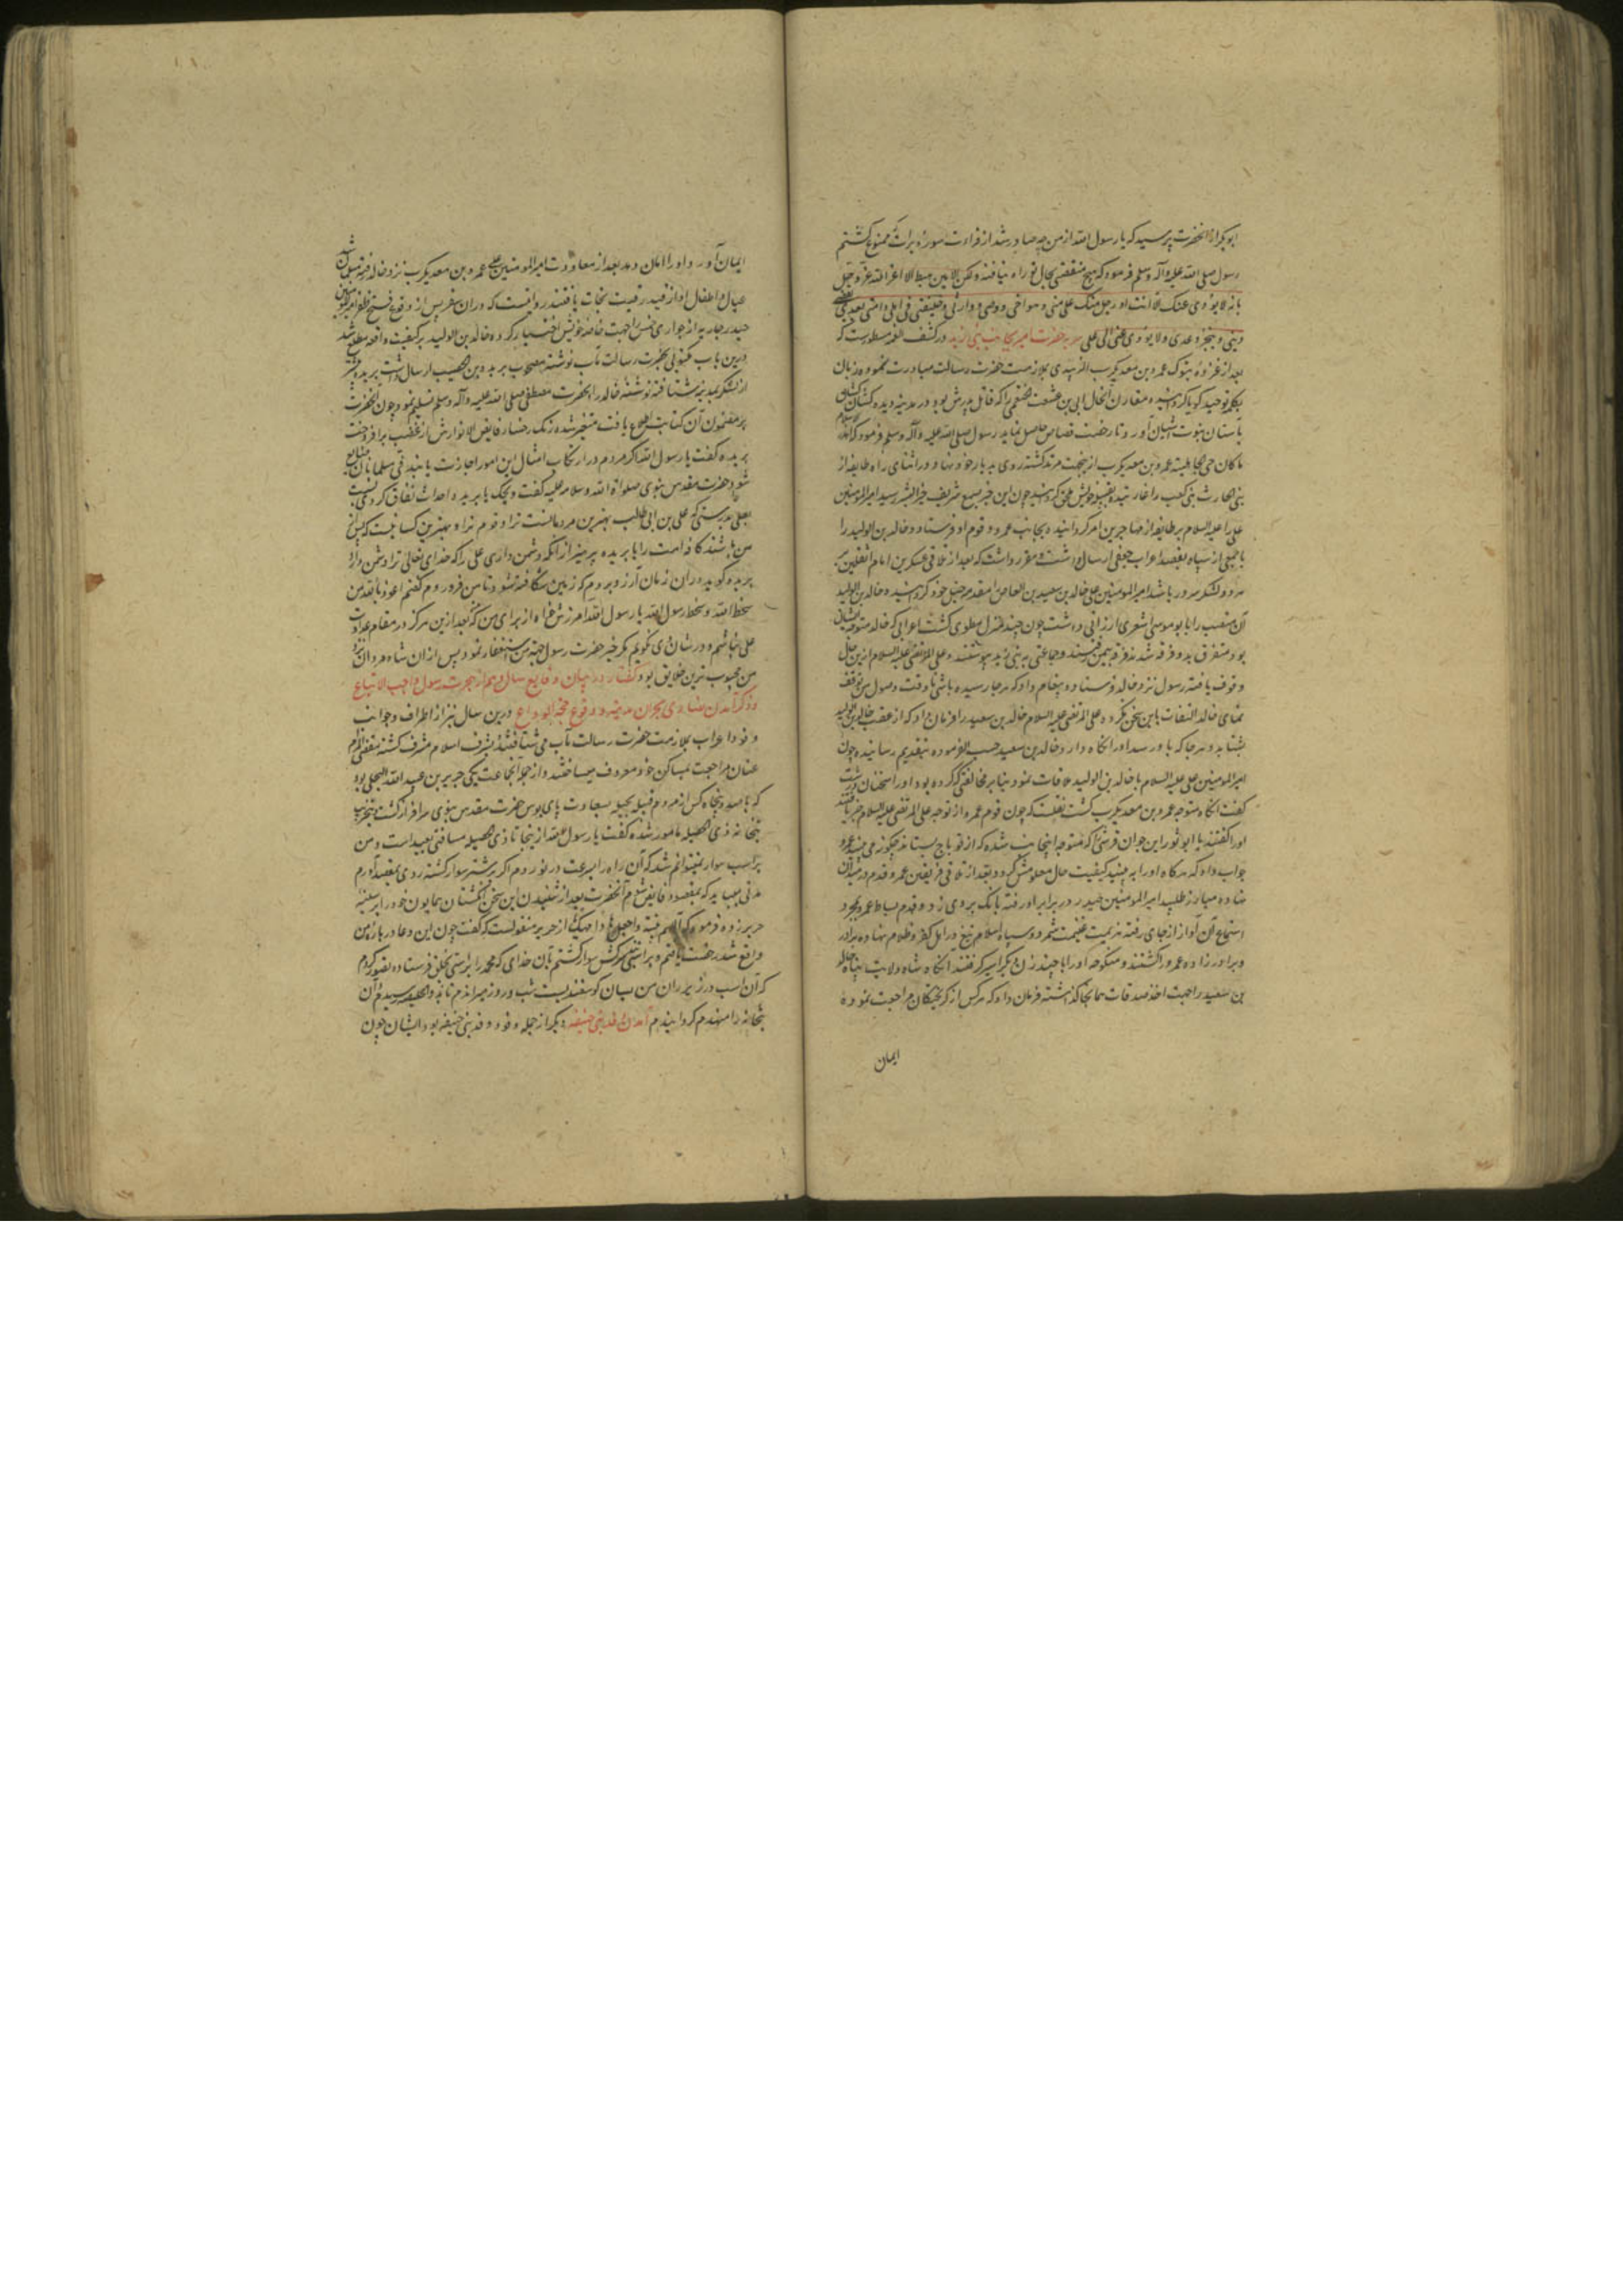 ابوبکر از آنحضرت پرسید که یا رسول الله از من چه صادر شد از قراءت سوره براءت ممنوع کشتم
رسول صلی الله علیه وآله وسلم فرمود که هیچ منقصتی بحال تو راه نیافته ولکن الامین هبط الا عن الله عز وجل
بانه لا یودی عنک الا انت او رجل منک علی منی وهو اخی ووصی ووارثی وخلیفتی فی اهلی وامتی بعدی یقضی
دینی وینجز وعدی ولا یودی عنی الا علی حضرت امیر بجانب بنی زبید در کشف الغمه مسطورست که
بعد از غزوه تبوک عمرو بن معدیکرب الزبیدی بملازمت حضرت رسالت مبادرت نموده زبان
بکلمه توحید کویا کردانید و مقارن آنحال ابی بن عثعث خثعمی را که قاتل پدرش بود در مدینه دیده کشان کشان
بآستان نبوت آشیان آورد تا رخصت قصاص حاصل نماید رسول صلی الله علیه وآله وسلم فرمود که اهدر الاسلام
ما کان فی الجاهلیة عمرو بن معدیکرب ازینجهت مرتد کشته روی بدیار خود نهاد و در اثنای راه طایفه از
بنی الحارث بن کعب را غارتیده بقبیله خویش ملحق کردید چون این خبر بسمع شریف خیر البشر رسید امیر المومنین
علی را علیه السلام بر طایفه از مهاجرین امیر کردانیده بجانب عمرو و قوم او فرستاد و خالد بن الولید را
با جمعی از سپاه بقصد اعراب جعفی ارسال داشت و مقرر داشت که بعد از تلاقی عسکرین امام الثقلین بر
هر دو لشکر سرور باشد امیر المومنین علی خالد بن سعید بن العاص را مقدمه جیش خود کردانید و خالد بن الولید
آن منصب را بابو موسی اشعری ارزانی داشت چون چند منزل مطوی کشت اعرابی که خالد متوجه ایشان
بود متفرق بدو فرقه شدند فرقه بیمن رفتند و جماعتی به بنی زبید پیوستند و علی المرتضی علیه السلام ازین حال
وقوف یافته رسول نزد خالد فرستاده پیغام داد که هر جا رسیده باشی تا وقت وصول من توقف
نمای خالد التفات باین سخن نکرده علی المرتضی علیه السلام خالد بن سعید را فرمان داد که از عقب خالد بن الولید
بشتابد و هر جا که باو رسد او را نکاه دارد خالد بن سعید حسب الفرموده بتقدیم رسانیده چون
امیر المومنین علی علیه السلام با خالد بن الولید ملاقات نمود بنا بر مخالفتی که کرده بود او را سخنان درشت
گفت آنکاه متوجه عمرو بن معدیکرب کشت نقلست که چون قوم عمرو از توجه علی المرتضی علیه السلام خبر یافتند
او را کفتند یا ابو ثور این جوان قرشی که متوجه اینجانب شده که از تو باج بستاند چکونه می بینی عمرو
جواب داد که هرکاه او را به بیند کیفیت حال معلومش کردد بعد از تلاقی فریقین عمرو قدم در میدان
نهاده مبارز طلبید امیر المومنین حیدر در برابر او رفته بانک بر وی زد و قدم بساط عمرو بمجرد
استماع آن آواز از جای رفته هزیمت غنیمت شمرد و سپاه اسلام تیغ در اهل کفر و ظلام نهاده برادر
و برادرزاده عمرو را کشتند و منکوحه او را با چند زن دیگر اسیر کرفتند آنکاه شاه ولایت پناه خالد
بن سعید را جهت اخذ صدقات همانجا کذاشته فرمان داد که هرکس از کریختکان مراجعت نموده
ایمان
ایمان آورد او را امان دهد بعد از معاودت امیر المومنین علی عمرو بن معدیکرب نزد خالد رفته مسلمان شد
عیال و اطفال او از قید رقیت نجات یافتند روایتست که در ان سفر پس از وقوع فتح و ظفر امیر المومنین
حیدر جاریه از جواری خمس را جهت خاصه خویش اختیار کرده خالد بن الولید بر کیفیت واقعه مطلع شد
درین باب مکتوبی بحضرت رسالت مآب نوشته مصحوب بریده بن حصیب ارسال داشت بریده پیشتر
از لشکر بمدینه شتافته نوشته خالد را بحضرت مصطفی صلی الله علیه وآله وسلم تسلیم نمود و چون آنحضرت
بر مضمون آن کتابت اطلاع یافت متغیر شده رنک رخسار فایض الانوارش از غضب برافروخت
بریده کفت یا رسول الله اکر مردم در ارتکاب امثال این امور اجازت یابند فی مسلمانان ضایع
شود حضرت مقدس نبوی صلوات الله وسلامه علیه کفت ویحک یا بریده احداث نفاق کردی نسبت
بعلی بدرستی که علی بن ابی طالب بهترین مردمانست ترا و قوم ترا و بهترین کسانیست که پس از
من باشند کافه امت را یا بریده بپرهیز از آنکه دشمن داری علی را که خدای تعالی ترا دشمن دارد
بریده کوید در ان زمان آرزو بردم که زمین شکافته شود تا من فرو روم کفتم اعوذ بالله من
سخط الله وسخط رسول الله یا رسول الله آمرزش خواه از برای من که بعد ازین هرکز در مقام عداوت
علی نباشم و در شان وی نکویم مکر خیر حضرت رسول جهة من استغفار نمود پس از ان شاه مردان نزد
من محبوب ترین خلایق بود کفتار در بیان وقایع سال دهم از هجرت رسول واجب الاتباع
و ذکر آمدن نصارای نجران بمدینه و وقوع حجة الوداع درین سال نیز از اطراف و جوانب
وفود اعراب بملازمت حضرت رسالت مآب می شتافتند و بشرف اسلام مشرف کشته مقضی المرام
عنان مراجعت بمساکن خود معطوف میساختند و از جمله آنجماعت یکی جریر بن عبد الله البجلی بود
که با صد و پنجاه کس از مردم قبیله بجیله بسعادت پای بوس حضرت مقدس نبوی سرافراز کشت و بتخریب
بتخانه ذی الخلصه مامور شده کفت یا رسول الله از ینجا تا ذی الخلصه مسافتی بعید است و من
بر اسب سوار نمیتوانم شد که آن راه را بسرعت در نوردم و اکر بر شتر سوار کشته روی بمقصد آورم
مدتی میباید که بمقصود فایض شوم آنحضرت بعد از شنیدن این سخن انکشتان همایون خود را بر سینه
جریر زده فرمود که اللهم ثبته واجعله هادیا مهدیا از جریر منقولست که کفت چون این دعا در باره من
واقع شد رخصت یافتم و بر اسبی سرکش سوار کشتم بآن خدای که محمد را براستی بخلق فرستاده تصور کردم
که آن اسب در زیر ران من بسان کوسفندیست شب و روز میراندم تا بذو الخلصه رسیدم و آن
بتخانه را منهدم کردانیدم آمدن وفد بنی حنیفه دیکر از جمله وفود وفد بنی حنیفه بود و ایشان چون